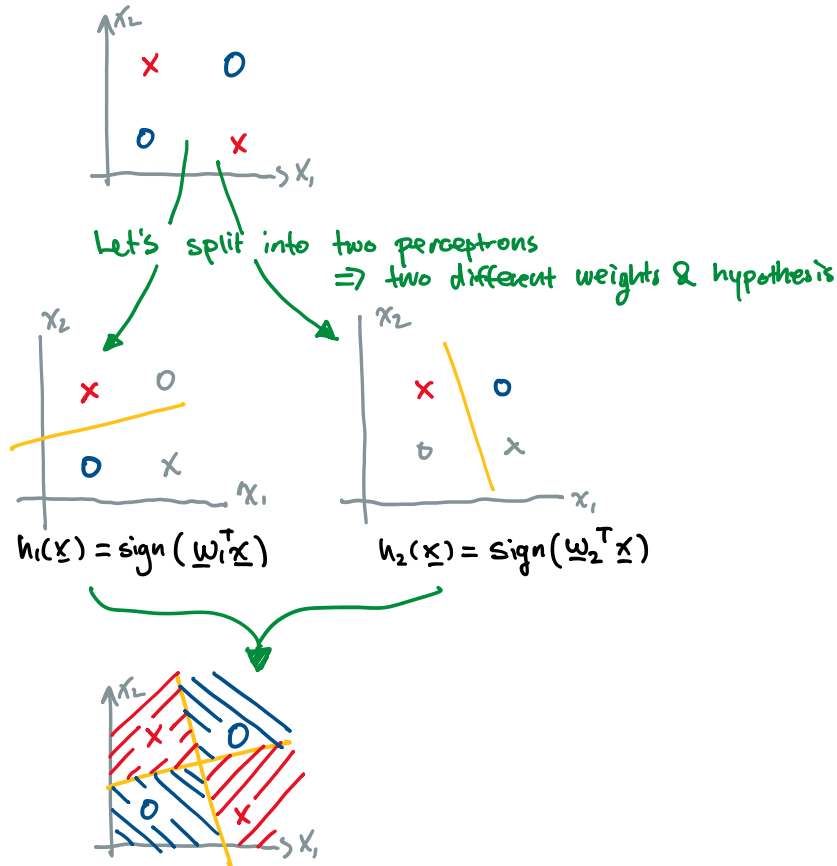 x₂
x o
o x
x₁
Let's split into two perceptrons
⇒ two different weights & hypothesis
x₂
x o
o x
x₁
h₁(x) = sign(w₁ᵀx)
x₂
x o
o x
x₁
h₂(x) = sign(w₂ᵀx)
x₂
x o
o x
x₁